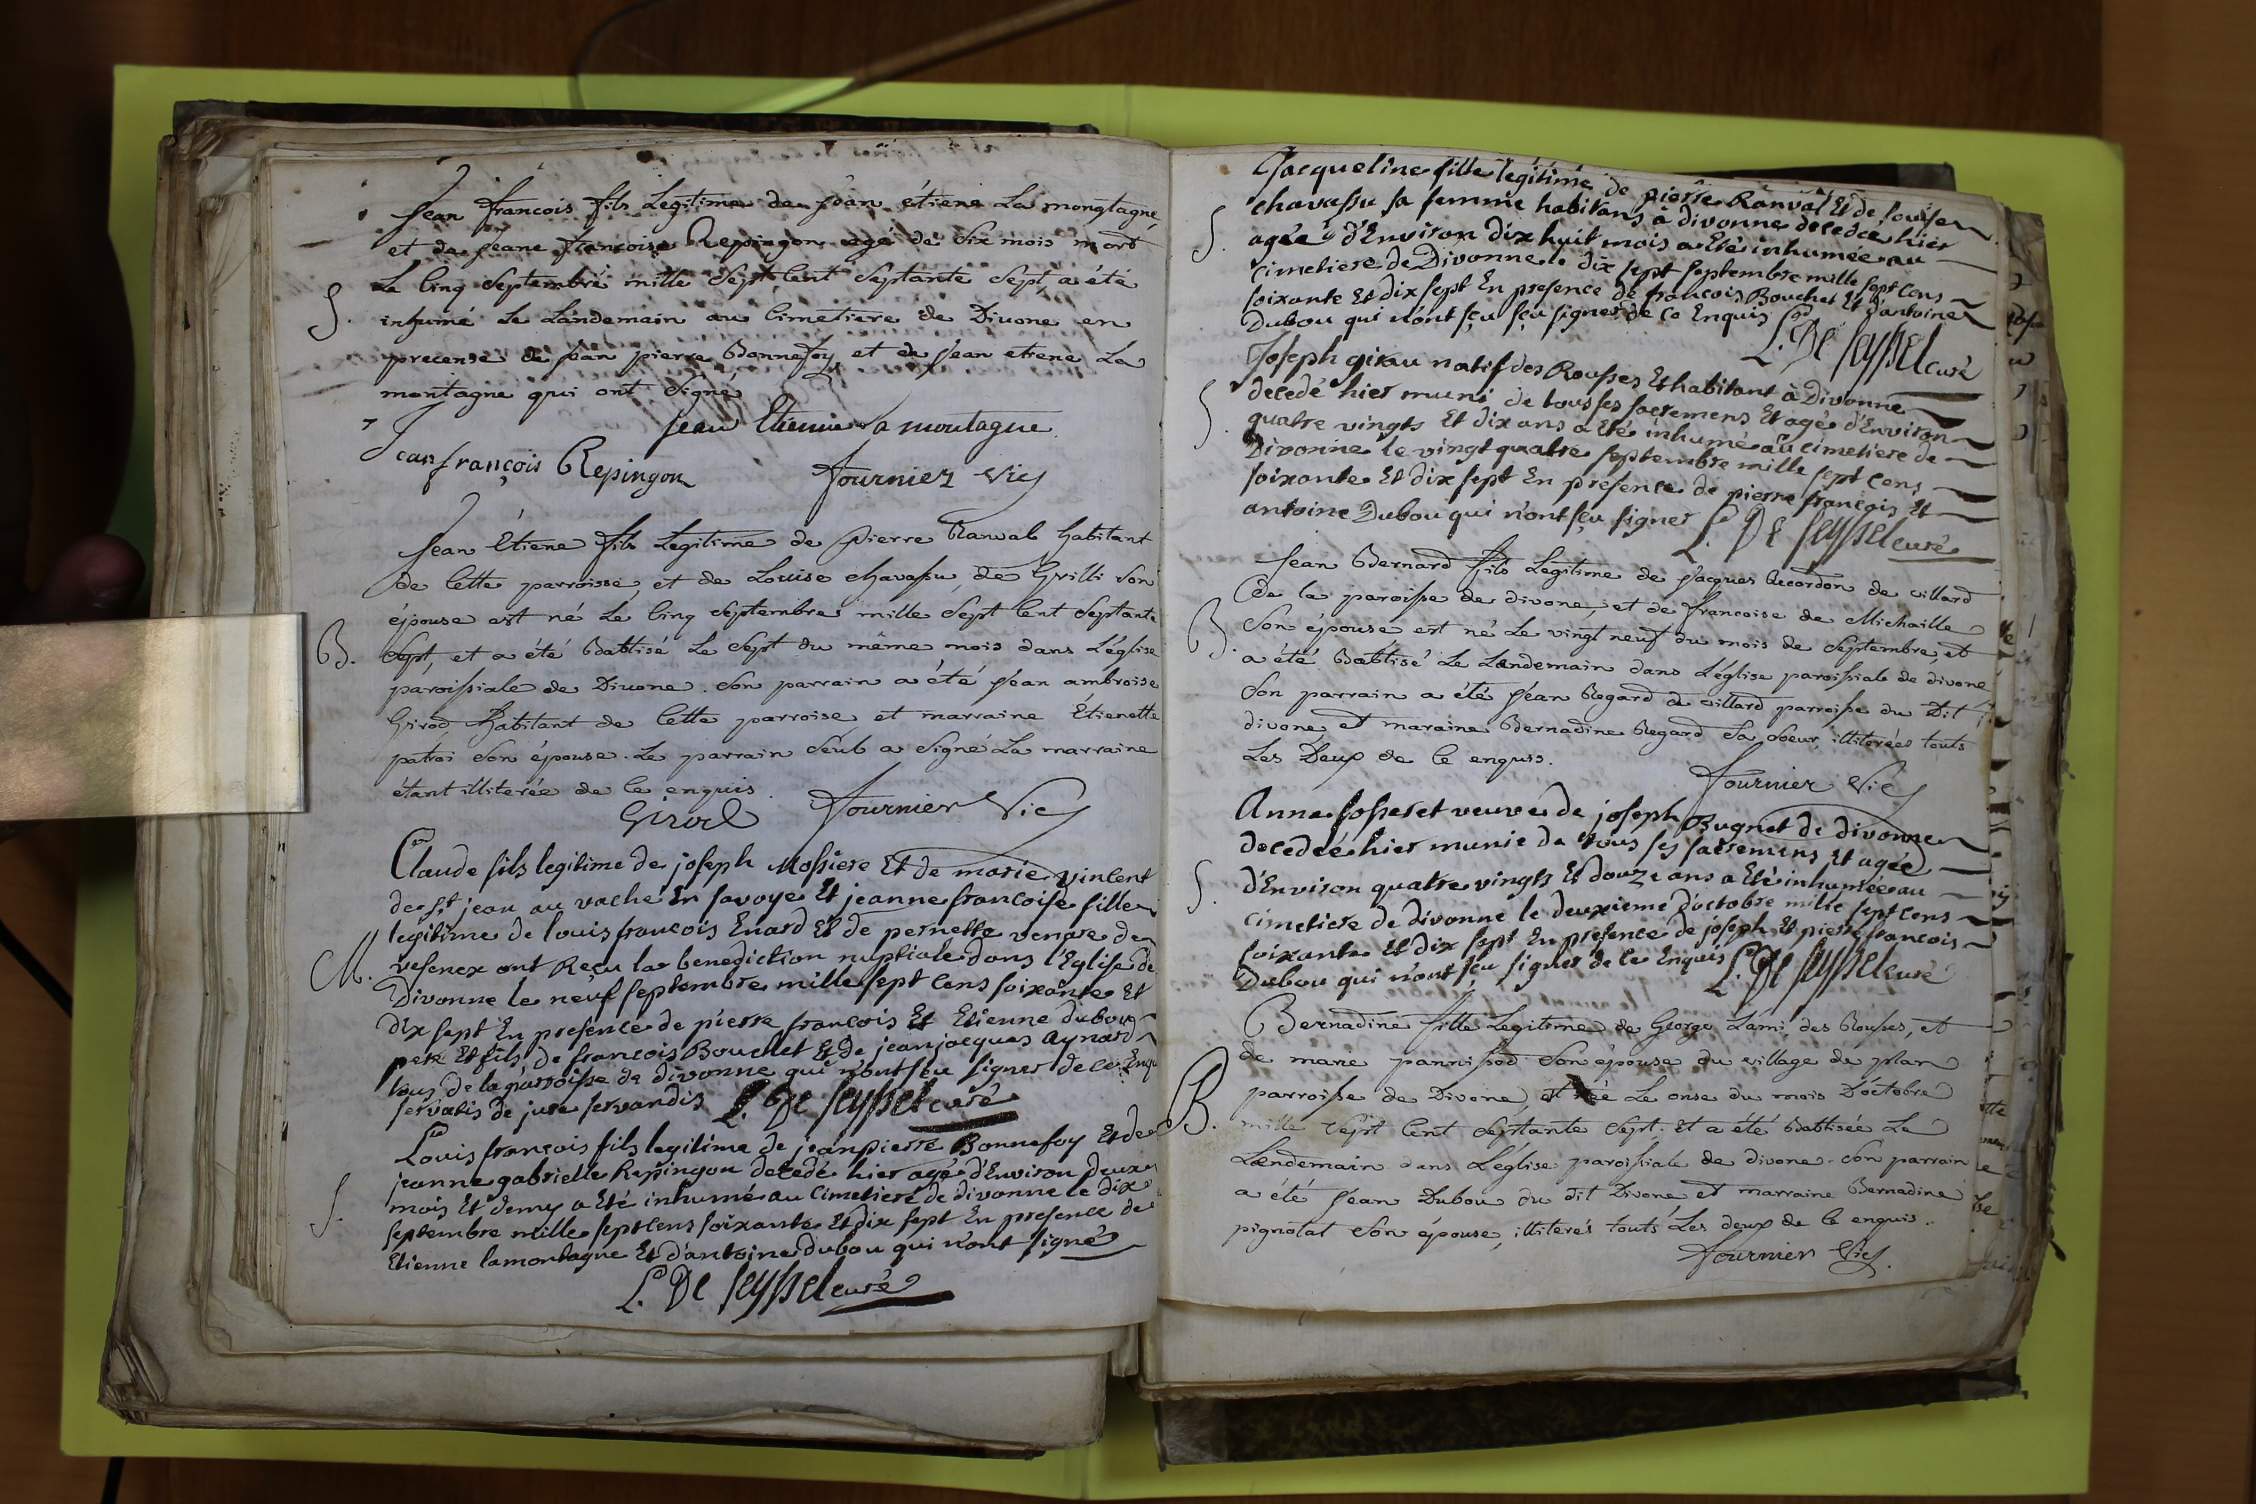 Jean francois fils Legitime de jean étiene La mongtagne,
et de jeane francoise Repingon agé de six mois mort
Le Cinq Septembre mille Sept Cent Septante Sept, a été
S. inhumé Le Landemain au Cimetiere de Divone en
precense de jean pierre Bonnefoy et de jean etiene La
montagne qui ont signé
jean Etienne La montagne
Jean françois Repingon fournier vic
Jean Étiene fils Legitime de Pierre Ranval habitant
de Cette parroisse, et de Louise chavassu, de Grilli son
épouse est né Le Cinq Septembre mille Sept Cent Septante
B. Sept, et a été Babtisé Le Sept du même mois dans L'église
paroissiale de Divone. Son parrain a été jean ambroise
Girod habitant de Cette parroise et marraine Étienette
patroi son épouse. Le parrain seul a signé La marraine
étant illiterée de Ce enquis.
Girod fournier Vic
Claude fils legitime de joseph Mossiere Et de marie vincent
de st jean au vache En Savoye Et jeanne francoise fille
legitime de louis françois Enard Et de pernette venare de
M. vesenex ont Reçu la benediction nuptiale dans l'Eglise de
Divonne le neuf septembre mille sept cens soixante Et
dix sept En presence de pierre françois Et Etienne dubou
pere Et fils de francois Bouchet Et de jean jacques aynard
tous de la parroisse de divonne qui n'ont sçu signer de ce Enqu
servatis de jure servandis L. De seyssel curé
Louis françois fils legitime de jean pierre Bonnefoy Et de
jeanne gabrielle Repingon decedé hier agé d'Environ deux
S. mois Et demy a Eté inhumé au Cimetiere de divonne le dix
septembre mille sept cens soixante Et dix sept En presence de
Etienne lamontagne Et d'antoine dubou qui n'ont signé
L. De seyssel curé
Jacqueline fille legitime de pierre Ranval Et de louise
chavassu sa femme habitans à divonne decedée hier
S. agée d'Environ dix huit mois a Eté inhumée au
cimetiere de Divonne le dix sept septembre mille sept cens
soixante Et dix sept En presence de francois Bouchet Et d'antoine
Dubou qui n'ont sçu sçu signer de ce Enquis
L. De seyssel curé
Joseph girau natif des Rousses Et habitant à Divonne
decedé hier muni de tous ses sacremens Et agé d'Environ
S. quatre vingts Et dix ans a Eté inhumé au cimetiere de
Divonne le vingt quatre septembre mille sept cens
soixante Et dix sept En presence de pierre françois Et
antoine Dubou qui n'ont sçu signer L. De seyssel curé
Jean Bernard fils Légitime de jacques Recordon de villard
de la paroisse de divone, et de francoise de Michaille
B. Son épouse est né Le vingt neuf du mois de Septembre, et
a été Babtisé Le Landemain dans L'église paroissiale de divone
Son parrain a été jean Regard de villard parroisse du Dit
divone, et maraine Bernadine Regard sa soeur, illiterées touts
Les Deux de Ce enquis.
fournier Vic
Anne josseret veuve de joseph Bugnet de divonne
decedée hier munie de tous ses sacremens Et agée
S. d'Environ quatre vingts Et douze ans a Eté inhumée au
cimetiere de divonne le deuxieme d'octobre mille sept cens
soixante Et dix sept En presence de joseph Et pierre francois
Dubou qui n'ont sçu signer de ce Enquis L. De seyssel curé
Bernadine fille Legitime de George Lami des Rousses, et
de marie pannissod son épouse du village de plan
parroisse de Divone, et née Le onse du mois D'octobre
B. mille Sept Cent Septante Sept. Et a été Babtisée Le
Landemain dans L'église paroissiale de divone. Son parrain
a été jean Dubou du dit Divone et marraine Bernadine
pignolat son épouse, illiterés touts Les deux de Ce enquis.
fournier Vic.